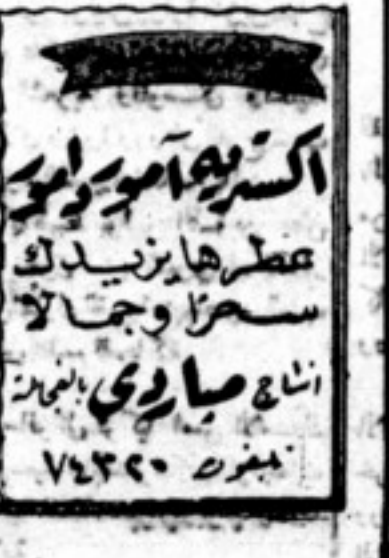 اكستريه آمور دامور
عطرها يزيدك
سحرًا وجمالًا
انتاج صباردي بالفجالة
تليفون ٧٤٣٢٠